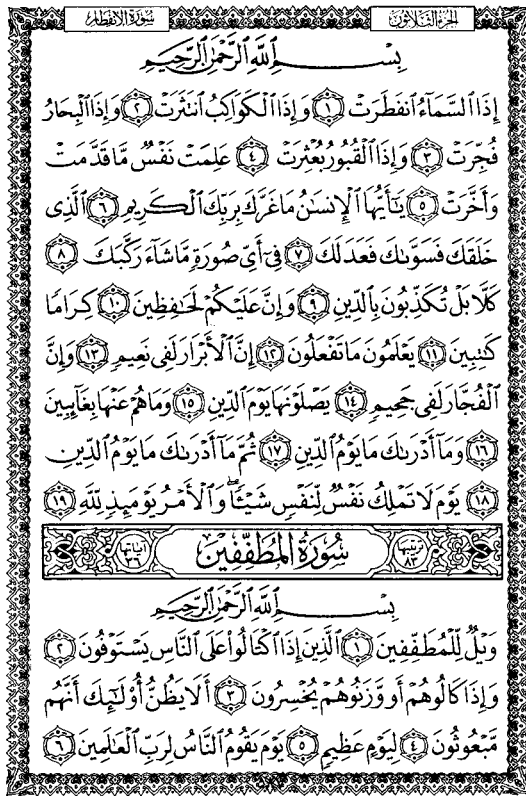 الجزء الثلاثون سورة الانفطار
بِسْمِ ٱللَّهِ ٱلرَّحْمَٰنِ ٱلرَّحِيمِ
إِذَا ٱلسَّمَآءُ ٱنفَطَرَتْ ١ وَإِذَا ٱلْكَوَاكِبُ ٱنتَثَرَتْ ٢ وَإِذَا ٱلْبِحَارُ
فُجِّرَتْ ٣ وَإِذَا ٱلْقُبُورُ بُعْثِرَتْ ٤ عَلِمَتْ نَفْسٌ مَّا قَدَّمَتْ
وَأَخَّرَتْ ٥ يَٰٓأَيُّهَا ٱلْإِنسَٰنُ مَا غَرَّكَ بِرَبِّكَ ٱلْكَرِيمِ ٦ ٱلَّذِى
خَلَقَكَ فَسَوَّىٰكَ فَعَدَلَكَ ٧ فِىٓ أَىِّ صُورَةٍ مَّا شَآءَ رَكَّبَكَ ٨
كَلَّا بَلْ تُكَذِّبُونَ بِٱلدِّينِ ٩ وَإِنَّ عَلَيْكُمْ لَحَٰفِظِينَ ١٠ كِرَامًا
كَٰتِبِينَ ١١ يَعْلَمُونَ مَا تَفْعَلُونَ ١٢ إِنَّ ٱلْأَبْرَارَ لَفِى نَعِيمٍ ١٣ وَإِنَّ
ٱلْفُجَّارَ لَفِى جَحِيمٍ ١٤ يَصْلَوْنَهَا يَوْمَ ٱلدِّينِ ١٥ وَمَا هُمْ عَنْهَا بِغَآئِبِينَ
١٦ وَمَآ أَدْرَىٰكَ مَا يَوْمُ ٱلدِّينِ ١٧ ثُمَّ مَآ أَدْرَىٰكَ مَا يَوْمُ ٱلدِّينِ
١٨ يَوْمَ لَا تَمْلِكُ نَفْسٌ لِّنَفْسٍ شَيْـًٔا ۖ وَٱلْأَمْرُ يَوْمَئِذٍ لِّلَّهِ ١٩
ترتيبها ٨٣ سُورَةُ المُطَفِّفِينَ آياتها ٣٦
بِسْمِ ٱللَّهِ ٱلرَّحْمَٰنِ ٱلرَّحِيمِ
وَيْلٌ لِّلْمُطَفِّفِينَ ١ ٱلَّذِينَ إِذَا ٱكْتَالُوا۟ عَلَى ٱلنَّاسِ يَسْتَوْفُونَ ٢
وَإِذَا كَالُوهُمْ أَو وَّزَنُوهُمْ يُخْسِرُونَ ٣ أَلَا يَظُنُّ أُو۟لَٰٓئِكَ أَنَّهُم
مَّبْعُوثُونَ ٤ لِيَوْمٍ عَظِيمٍ ٥ يَوْمَ يَقُومُ ٱلنَّاسُ لِرَبِّ ٱلْعَٰلَمِينَ ٦